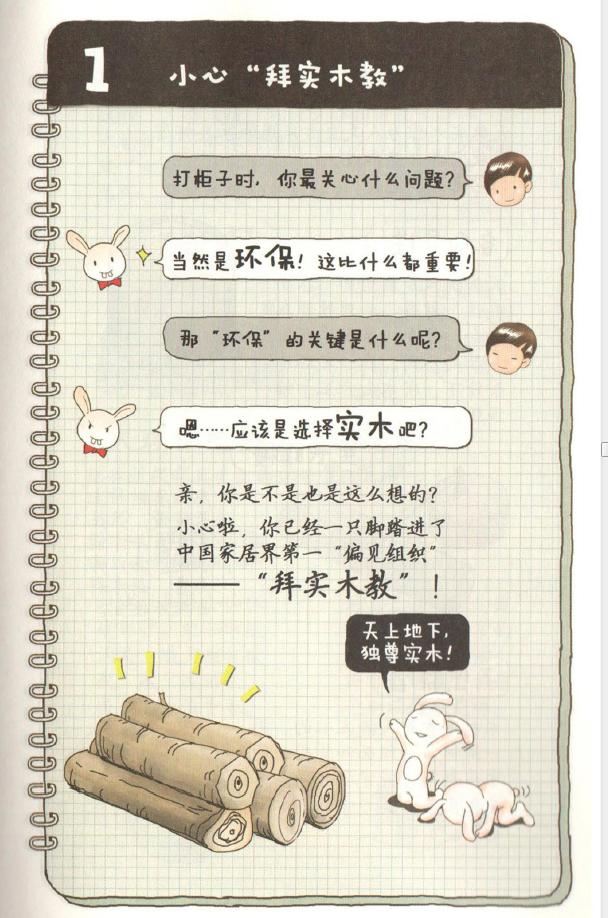 1
小心“拜实木教”
打柜子时，你最关心什么问题？
当然是环保！这比什么都重要！
那“环保”的关键是什么呢？
嗯……应该是选择实木吧？
亲，你是不是也是这么想的？
小心啦，你已经一只脚踏进了
中国家居界第一“偏见组织”
——“拜实木教”！
天上地下，
独尊实木！